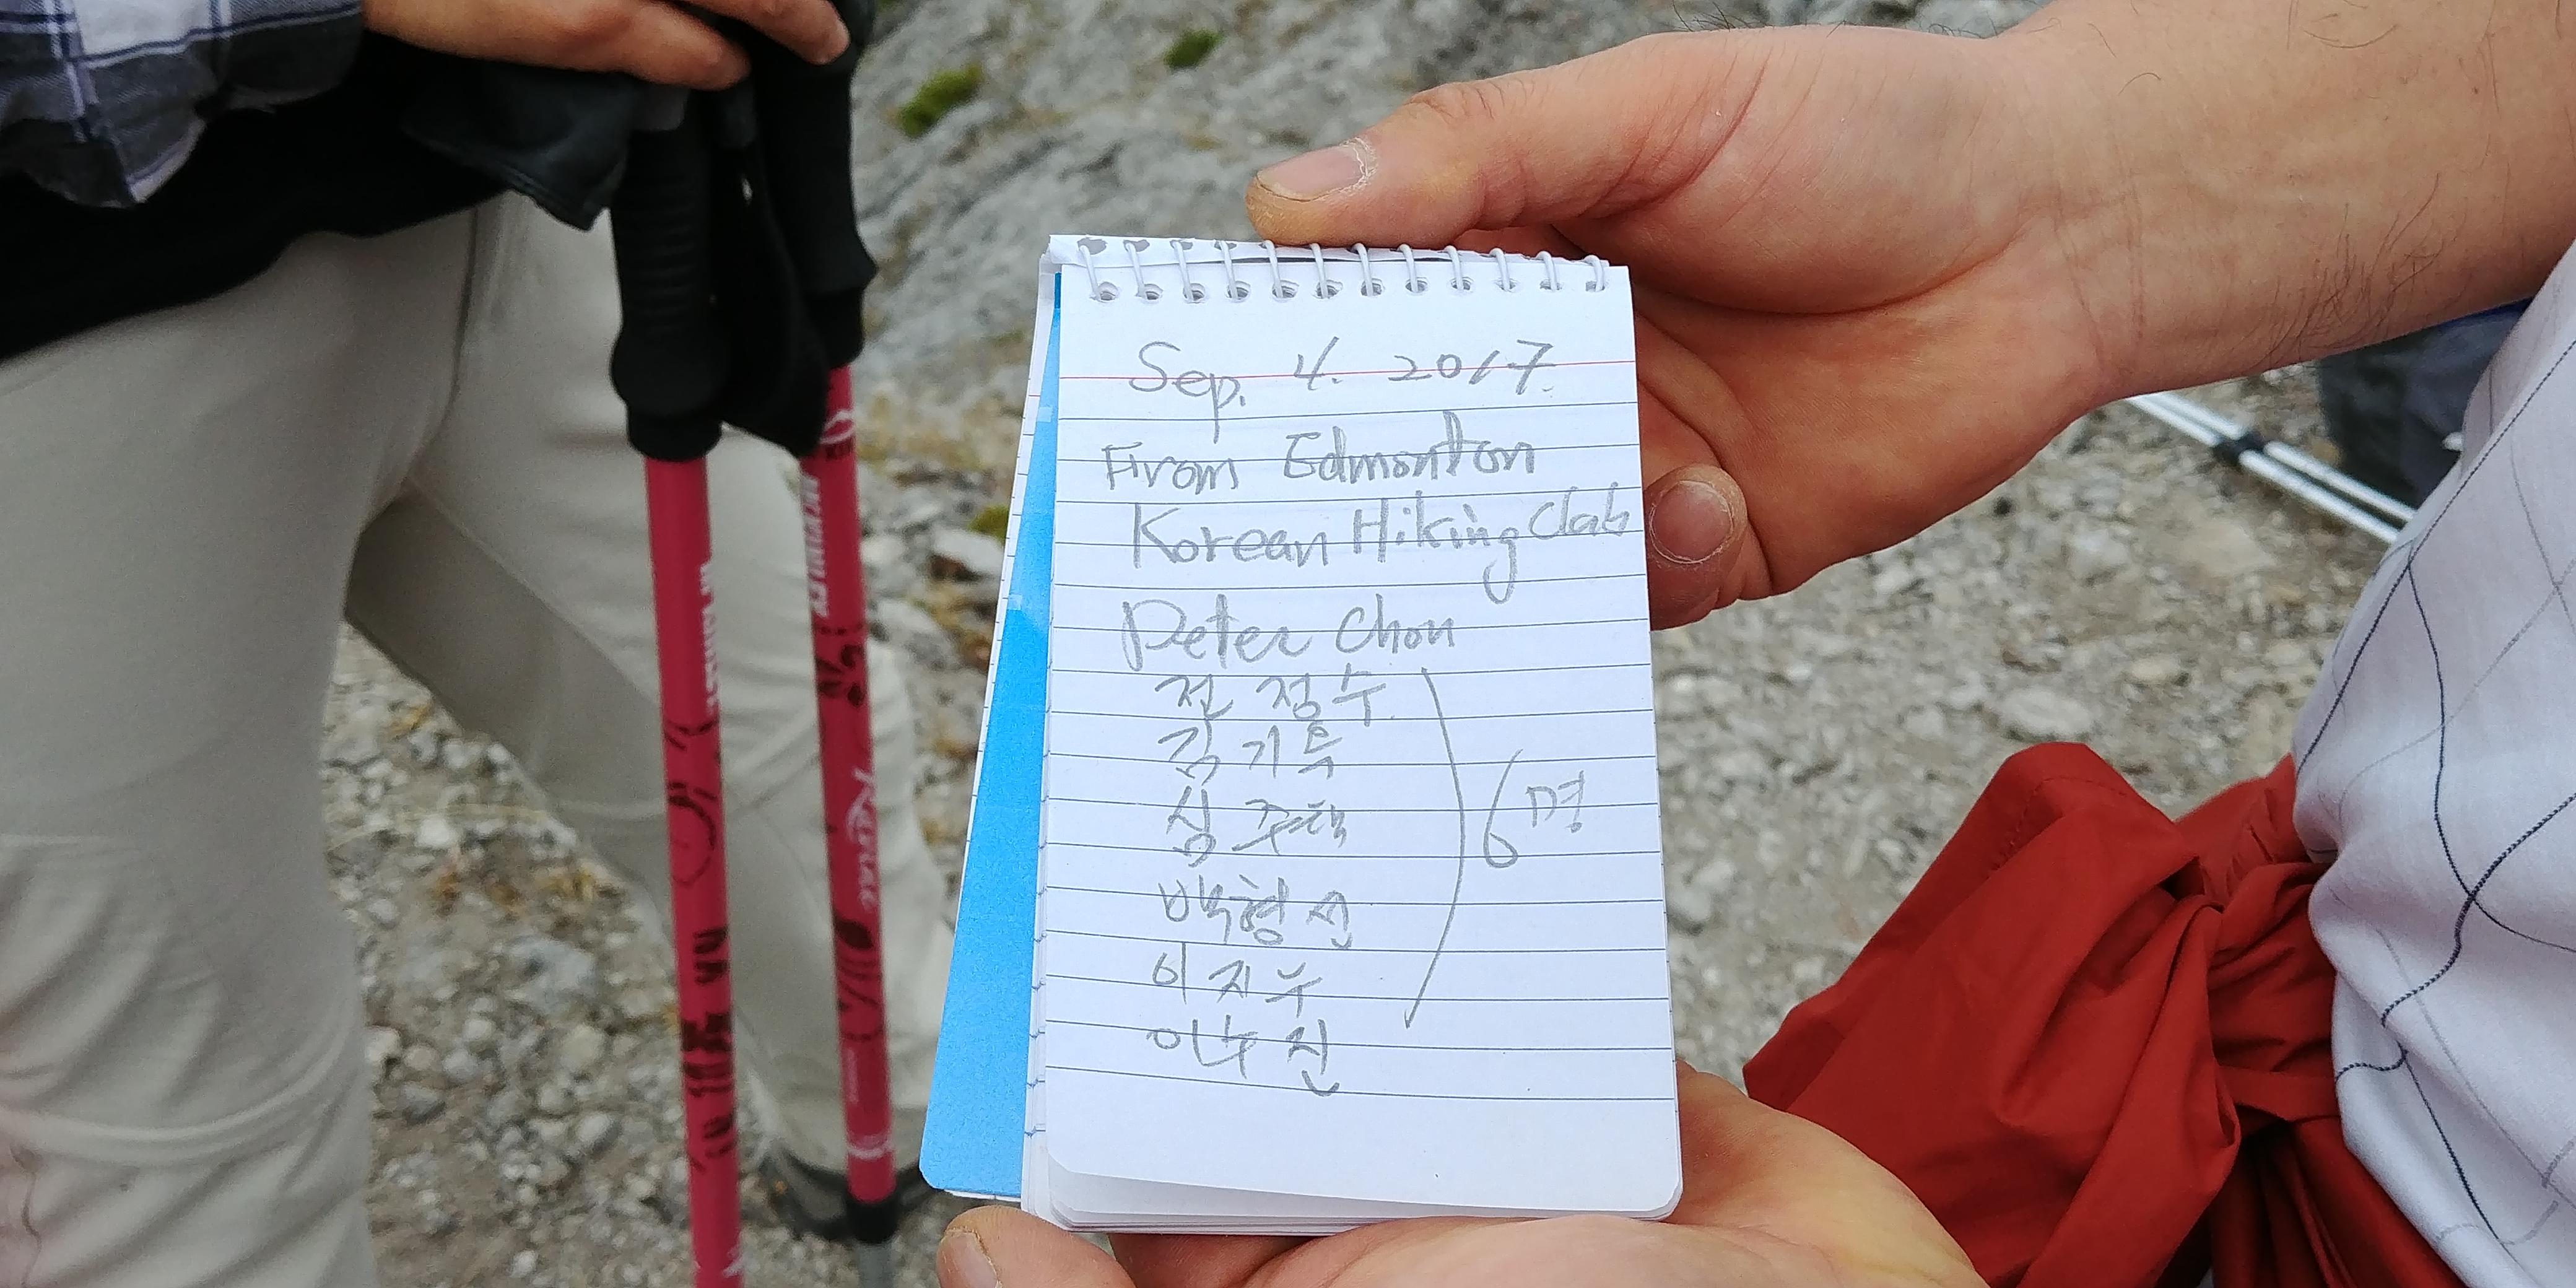 Sep. 4. 2017.
From Edmonton
Korean Hiking Club
Peter Chon
전 정수
김 기욱
심 주택
백형선
이 지수
이수진
6명